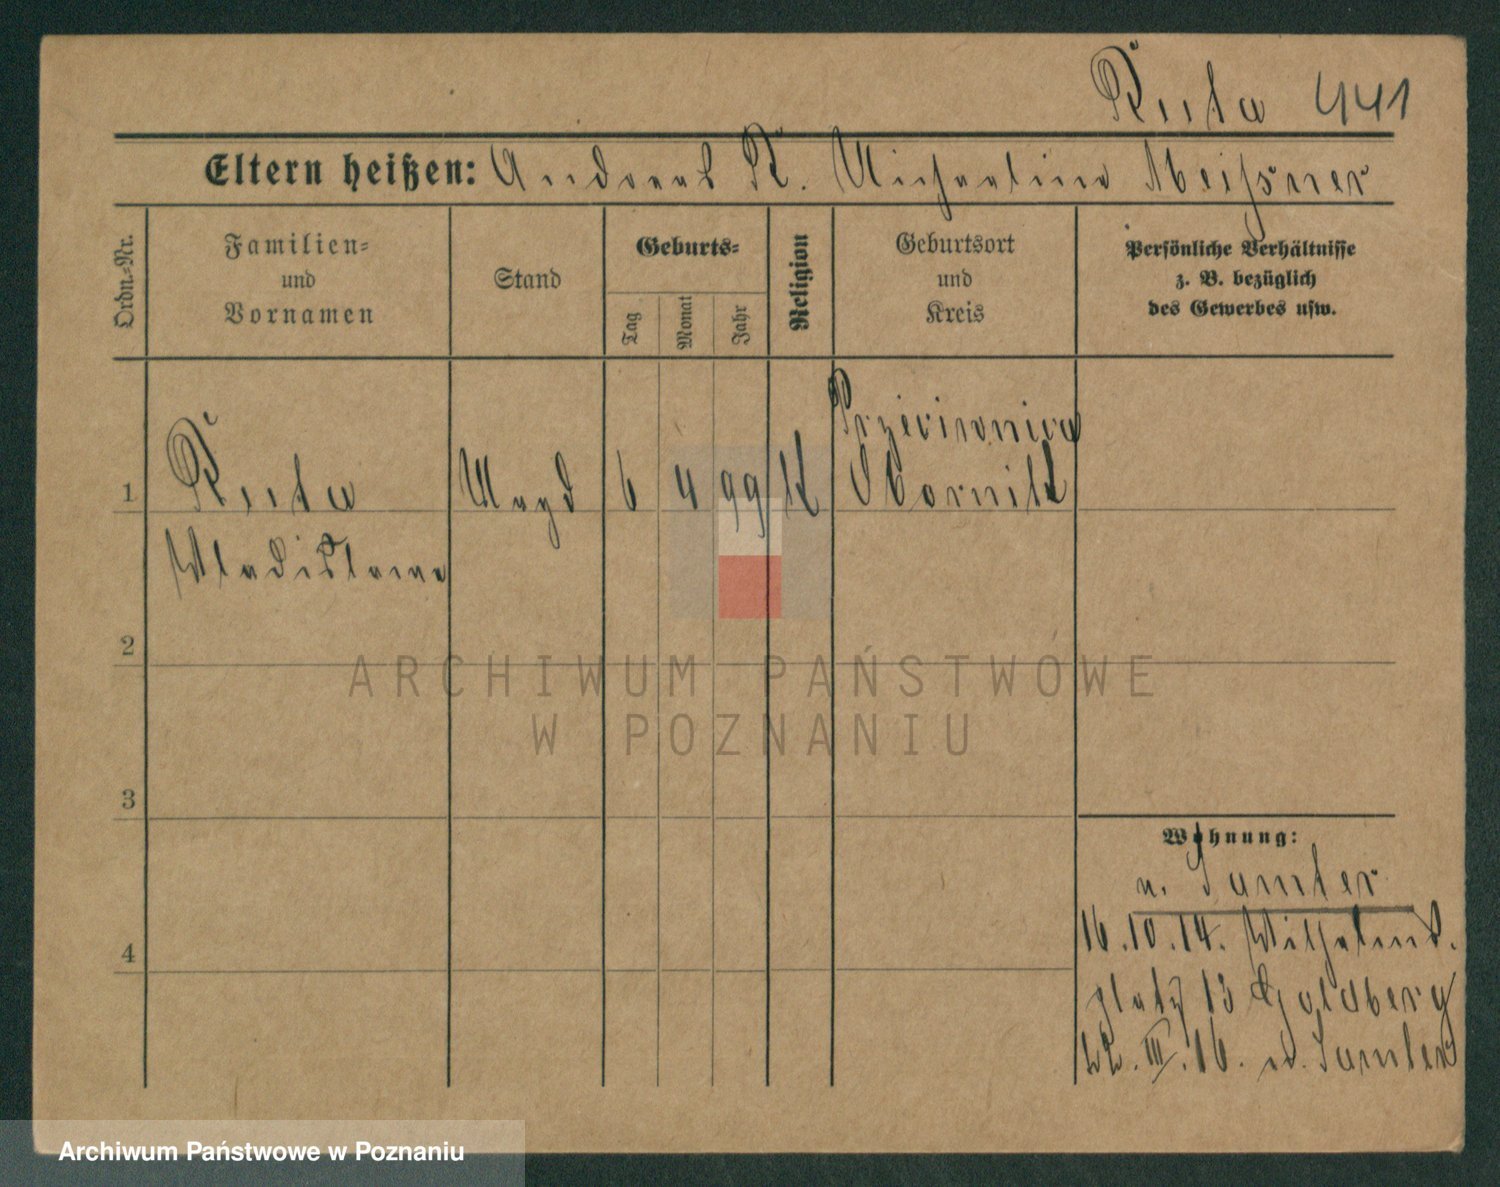 Ruta 441
Eltern heißen: Andreas R. Michalina Meißner
Ordn.-Nr.
Familien-
und
Vornamen
Stand
Geburts-
Tag
Monat
Jahr
Religion
Geburtsort
und
Kreis
Persönliche Verhältnisse
z. B. bezüglich
des Gewerbes usw.
1 Ruta Magd 6 4 99 K
Obornik
Wladislawa
2
3
4
Wohnung:
n. Samter
16.10.14. Wilhelms-
platz 13 Goldberg
22.III.16. n. Samter
ARCHIWUM PAŃSTWOWE
W POZNANIU
Archiwum Państwowe w Poznaniu